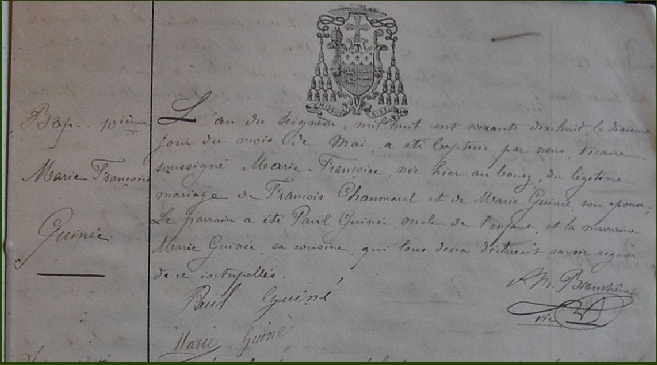 Bap. 10ième
Marie Françoise
Guinée
L'an du Seigneur, mil huit cent soixante dix huit, le dixième
jour du mois de Mai, a été baptisée par nous, vicaire
soussigné Marie-Françoise, née hier au bourg, du légitime
mariage de François Chaumarel et de Marie Guinée son épouse.
Le parrain a été Paul Guiné oncle de l'enfant, et la marraine
Marie Guinée sa cousine, qui tous deux savoir signer
de ce interpellés.
Paul Guiné
Marie Guiné
vic